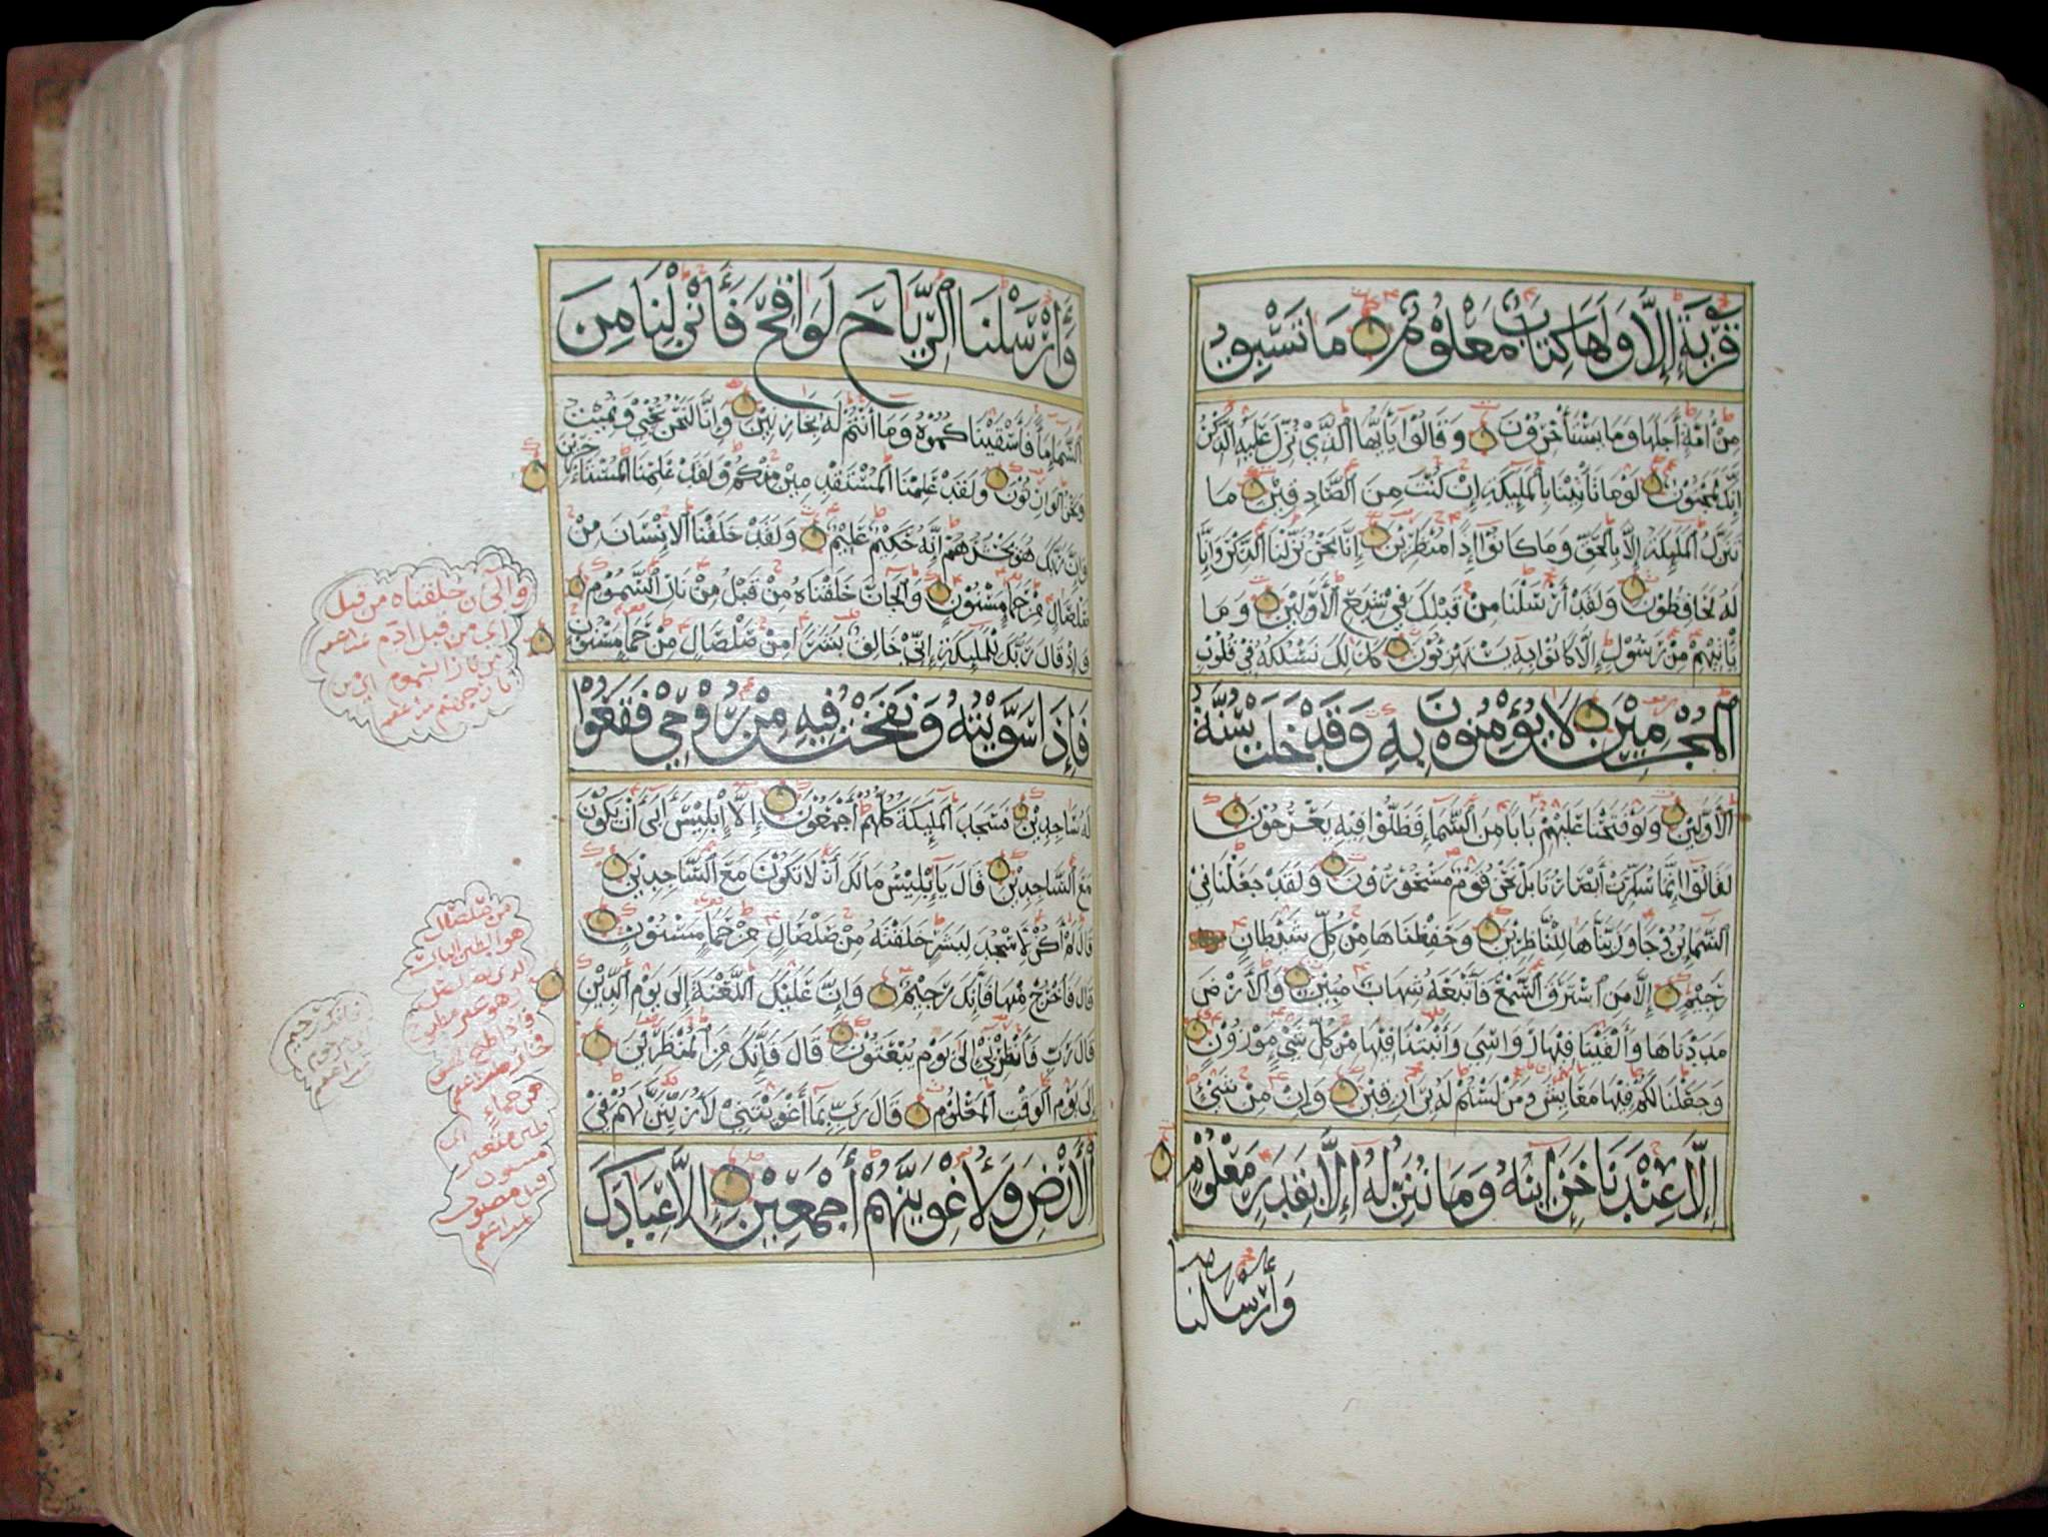 قَرْيَةٍ إِلَّا وَلَهَا كِتَابٌ مَعْلُوْمٌ مَا تَسْبِقُ
مِنْ أُمَّةٍ أَجَلَهَا وَمَا يَسْتَأْخِرُوْنَ وَقَالُوْا يَاأَيُّهَا الَّذِيْ نُزِّلَ عَلَيْهِ الذِّكْرُ
إِنَّكَ لَمَجْنُوْنٌ لَوْمَا تَأْتِيْنَا بِالْمَلٰئِكَةِ إِنْ كُنْتَ مِنَ الصَّادِقِيْنَ مَا
نُنَزِّلُ الْمَلٰئِكَةَ إِلَّا بِالْحَقِّ وَمَا كَانُوْا إِذًا مُنْظَرِيْنَ إِنَّا نَحْنُ نَزَّلْنَا الذِّكْرَ وَإِنَّا
لَهُ لَحَافِظُوْنَ وَلَقَدْ أَرْسَلْنَا مِنْ قَبْلِكَ فِيْ شِيَعِ الْأَوَّلِيْنَ وَمَا
يَأْتِيْهِمْ مِنْ رَسُوْلٍ إِلَّا كَانُوْا بِهِ يَسْتَهْزِئُوْنَ كَذٰلِكَ نَسْلُكُهُ فِيْ قُلُوْبِ
الْمُجْرِمِيْنَ لَا يُؤْمِنُوْنَ بِهِ وَقَدْ خَلَتْ سُنَّةُ
الْأَوَّلِيْنَ وَلَوْ فَتَحْنَا عَلَيْهِمْ بَابًا مِنَ السَّمَاءِ فَظَلُّوْا فِيْهِ يَعْرُجُوْنَ
لَقَالُوْا إِنَّمَا سُكِّرَتْ أَبْصَارُنَا بَلْ نَحْنُ قَوْمٌ مَسْحُوْرُوْنَ وَلَقَدْ جَعَلْنَا فِيْ
السَّمَاءِ بُرُوْجًا وَزَيَّنَّاهَا لِلنَّاظِرِيْنَ وَحَفِظْنَاهَا مِنْ كُلِّ شَيْطَانٍ
رَجِيْمٍ إِلَّا مَنِ اسْتَرَقَ السَّمْعَ فَأَتْبَعَهُ شِهَابٌ مُبِيْنٌ وَالْأَرْضَ
مَدَدْنَاهَا وَأَلْقَيْنَا فِيْهَا رَوَاسِيَ وَأَنْبَتْنَا فِيْهَا مِنْ كُلِّ شَيْءٍ مَوْزُوْنٍ
وَجَعَلْنَا لَكُمْ فِيْهَا مَعَايِشَ وَمَنْ لَسْتُمْ لَهُ بِرَازِقِيْنَ وَإِنْ مِنْ شَيْءٍ
إِلَّا عِنْدَنَا خَزَائِنُهُ وَمَا نُنَزِّلُهُ إِلَّا بِقَدَرٍ مَعْلُوْمٍ
وَأَرْسَلْنَا
وَأَرْسَلْنَا الرِّيَاحَ لَوَاقِحَ فَأَنْزَلْنَا مِنَ
السَّمَاءِ مَاءً فَأَسْقَيْنَاكُمُوْهُ وَمَا أَنْتُمْ لَهُ بِخَازِنِيْنَ وَإِنَّا لَنَحْنُ نُحْيِيْ وَنُمِيْتُ
وَنَحْنُ الْوَارِثُوْنَ وَلَقَدْ عَلِمْنَا الْمُسْتَقْدِمِيْنَ مِنْكُمْ وَلَقَدْ عَلِمْنَا الْمُسْتَأْخِرِيْنَ
وَإِنَّ رَبَّكَ هُوَ يَحْشُرُهُمْ إِنَّهُ حَكِيْمٌ عَلِيْمٌ وَلَقَدْ خَلَقْنَا الْإِنْسَانَ مِنْ
صَلْصَالٍ مِنْ حَمَإٍ مَسْنُوْنٍ وَالْجَانَّ خَلَقْنَاهُ مِنْ قَبْلُ مِنْ نَارِ السَّمُوْمِ
وَإِذْ قَالَ رَبُّكَ لِلْمَلٰئِكَةِ إِنِّيْ خَالِقٌ بَشَرًا مِنْ صَلْصَالٍ مِنْ حَمَإٍ مَسْنُوْنٍ
فَإِذَا سَوَّيْتُهُ وَنَفَخْتُ فِيْهِ مِنْ رُوْحِيْ فَقَعُوْا
لَهُ سَاجِدِيْنَ فَسَجَدَ الْمَلٰئِكَةُ كُلُّهُمْ أَجْمَعُوْنَ إِلَّا إِبْلِيْسَ أَبَى أَنْ يَكُوْنَ
مَعَ السَّاجِدِيْنَ قَالَ يَا إِبْلِيْسُ مَا لَكَ أَنْ لَا تَكُوْنَ مَعَ السَّاجِدِيْنَ
قَالَ لَمْ أَكُنْ لِأَسْجُدَ لِبَشَرٍ خَلَقْتَهُ مِنْ صَلْصَالٍ مِنْ حَمَإٍ مَسْنُوْنٍ
قَالَ فَاخْرُجْ مِنْهَا فَإِنَّكَ رَجِيْمٌ وَإِنَّ عَلَيْكَ اللَّعْنَةَ إِلَى يَوْمِ الدِّيْنِ
قَالَ رَبِّ فَأَنْظِرْنِيْ إِلَى يَوْمِ يُبْعَثُوْنَ قَالَ فَإِنَّكَ مِنَ الْمُنْظَرِيْنَ
إِلَى يَوْمِ الْوَقْتِ الْمَعْلُوْمِ قَالَ رَبِّ بِمَا أَغْوَيْتَنِيْ لَأُزَيِّنَنَّ لَهُمْ فِيْ
الْأَرْضِ وَلَأُغْوِيَنَّهُمْ أَجْمَعِيْنَ إِلَّا عِبَادَكَ
والجان خلقناه من قبل
اي من قبل ادم
من نار السموم
من صلصال
هو الطين اليابس
من حماء
طين متغير
مسنون